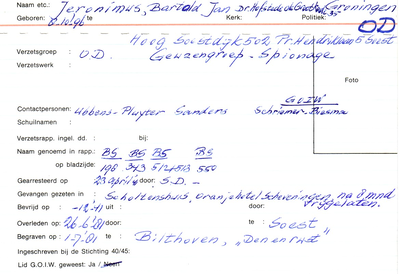 Naam etc.: Jeronimus, Bartold Jan Dr. Hofstede de Grootkade 35 Groningen
Geboren: 8-10-96 te Kerk: Politiek:
OD
Hoog Soestdijk 502 Pr. Hendriklaan 5 Soest
Verzetsgroep : O.D. Gewzengroep - Spionage
Verzetswerk :
Foto
G.O.I.W
Contactpersonen: Wobens-Pluyter Sanders Schriemer-Biesma
Schuilnaam :
Verzetsrapp. ingel. dd. : bij:
Naam genoemd in rapp.: BS BS BS BS
op bladzijde: 198 343 512+513 550
Gearresteerd op 23 april door: S.D. -
Gevangen gezeten in : Scholtenshuis, Oranjehotel Scheveningen, na 8 mnd
Bevrijd op : -12-41 door: vrijgelaten.
Overleden op : 26-6-'81 door: te Soest
Begraven op : 1-7-'81 te: Bilthoven, "Den en rust"
Ingeschreven bij de Stichting 40/45:
Lid G.O.I.W. geweest: Ja / Neen